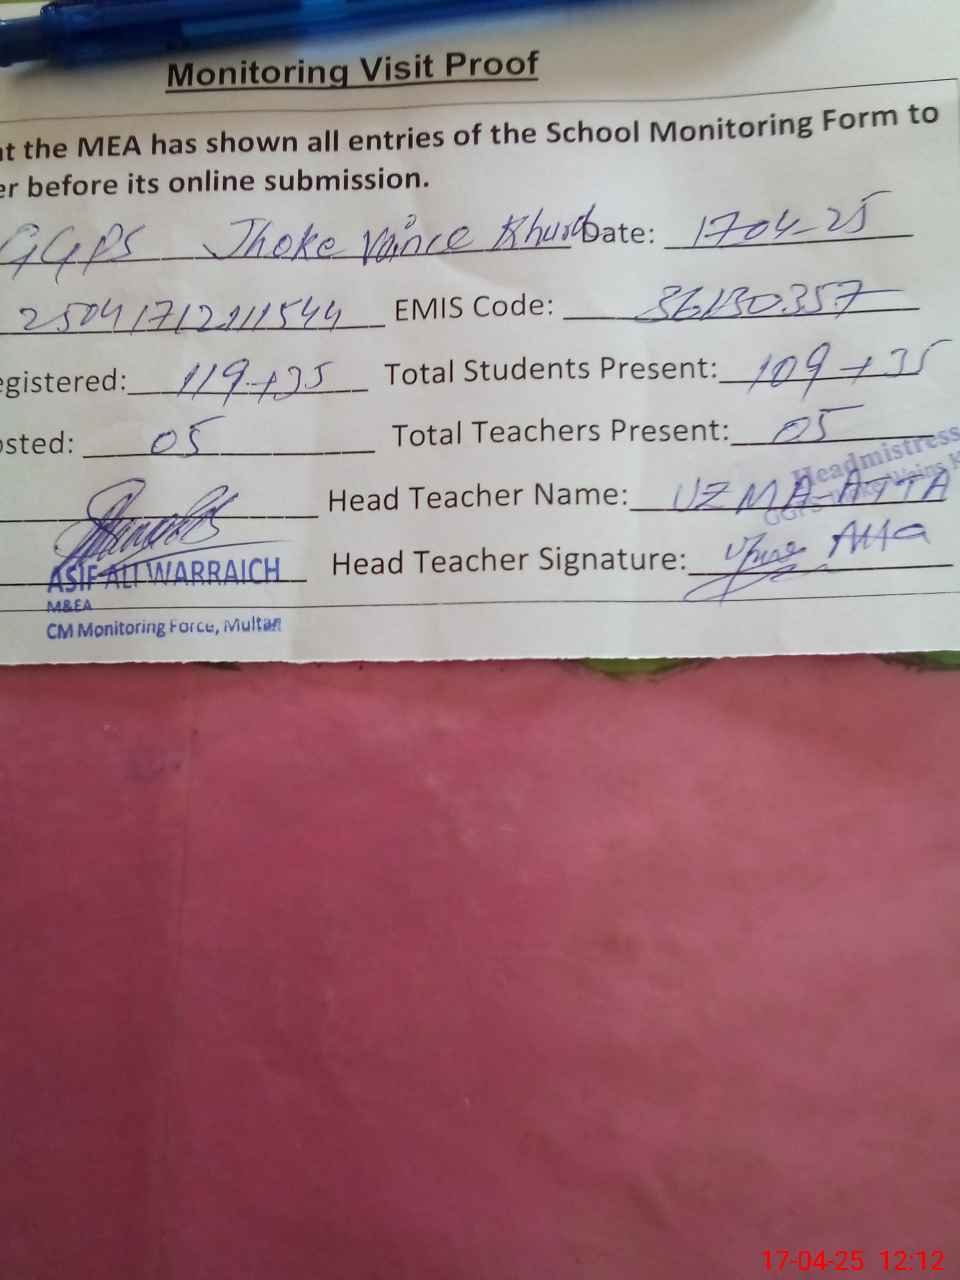 Monitoring Visit Proof
at the MEA has shown all entries of the School Monitoring Form to
er before its online submission.
GGPS Jhoke Vaince Khurd Date: 17-04-25
25041712111544 EMIS Code: 36130357
egistered: 119+35 Total Students Present: 109+35
osted: 05 Total Teachers Present: 05
Headmistress
Head Teacher Name: UZMA ATTA
GGPS
Head Teacher Signature: Uzma Atta
ASIF ALI WARRAICH
M&EA
CM Monitoring Force, Multan
17-04-25 12:12